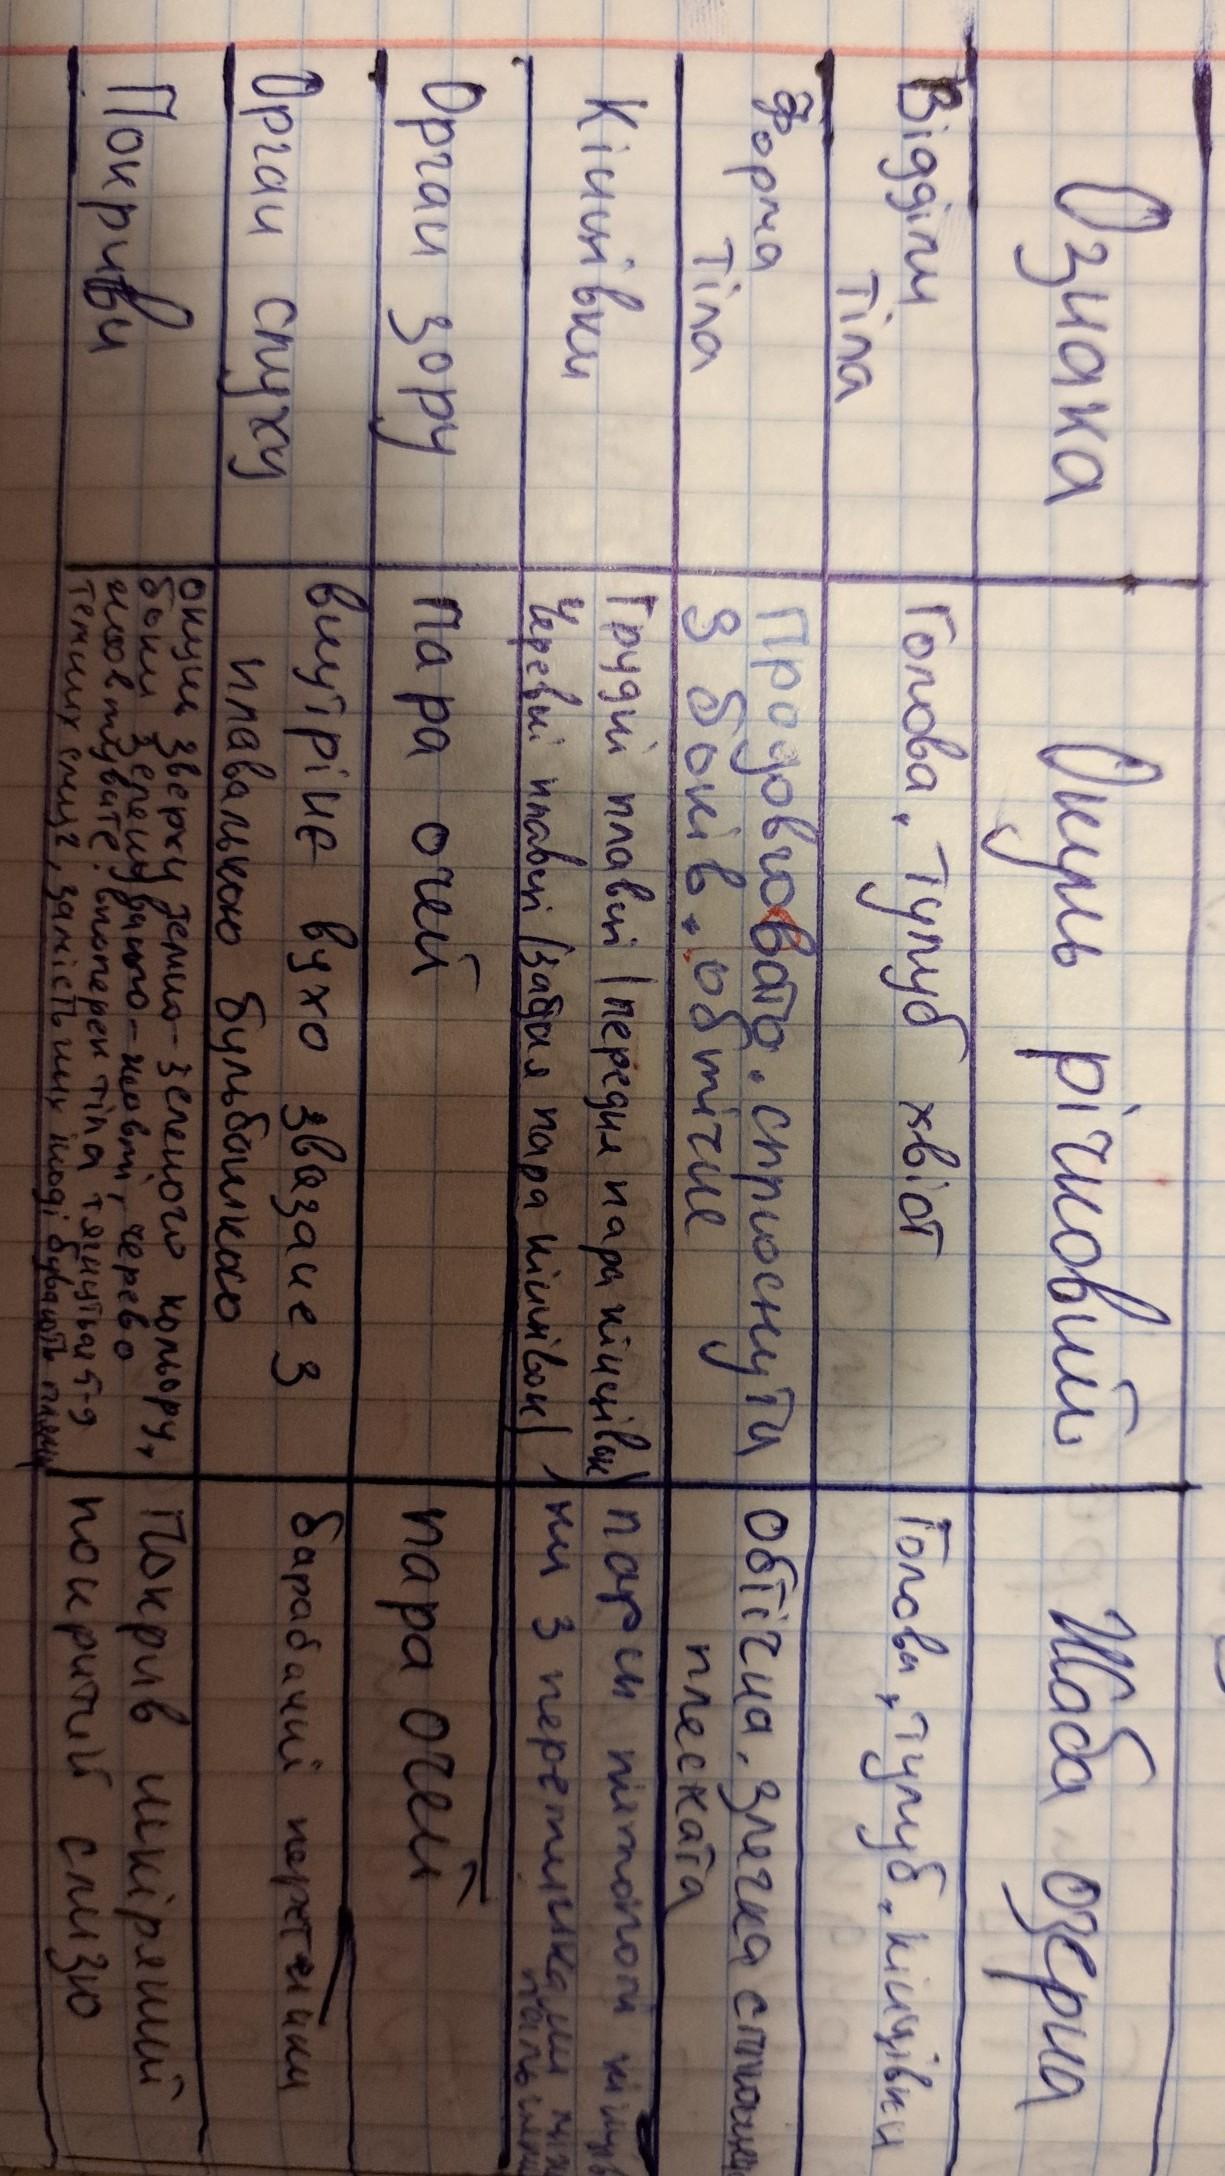 Ознака
Окунь річковий
Жаба озерна
Відділи
тіла
Голова, тулуб хвіст
Голова, тулуб, кінцівки
Форма
тіла
Продовгувато. сплюснути
з боків. обтічне
обтічна, злегка
плеската
Кінцівки
Грудні плавці (передня пара кінцівок)
Черевні плавці (задня пара кінцівок)
пари
ки з перетинками
пальцями
Орган зору
пара очей
пара очей
Орган слуху
внутрішнє вухо звазане з
плавальною бульбашкою
барабанні перетинки
Покриви
окунь зверху темно-зеленого кольору,
боки зеленувато-жовті, черево
жовтувате. впоперек тіла тянуться 5-9
темних смуг, замість них іноді бувають плями
Покрив шкіряний
покритий слизю